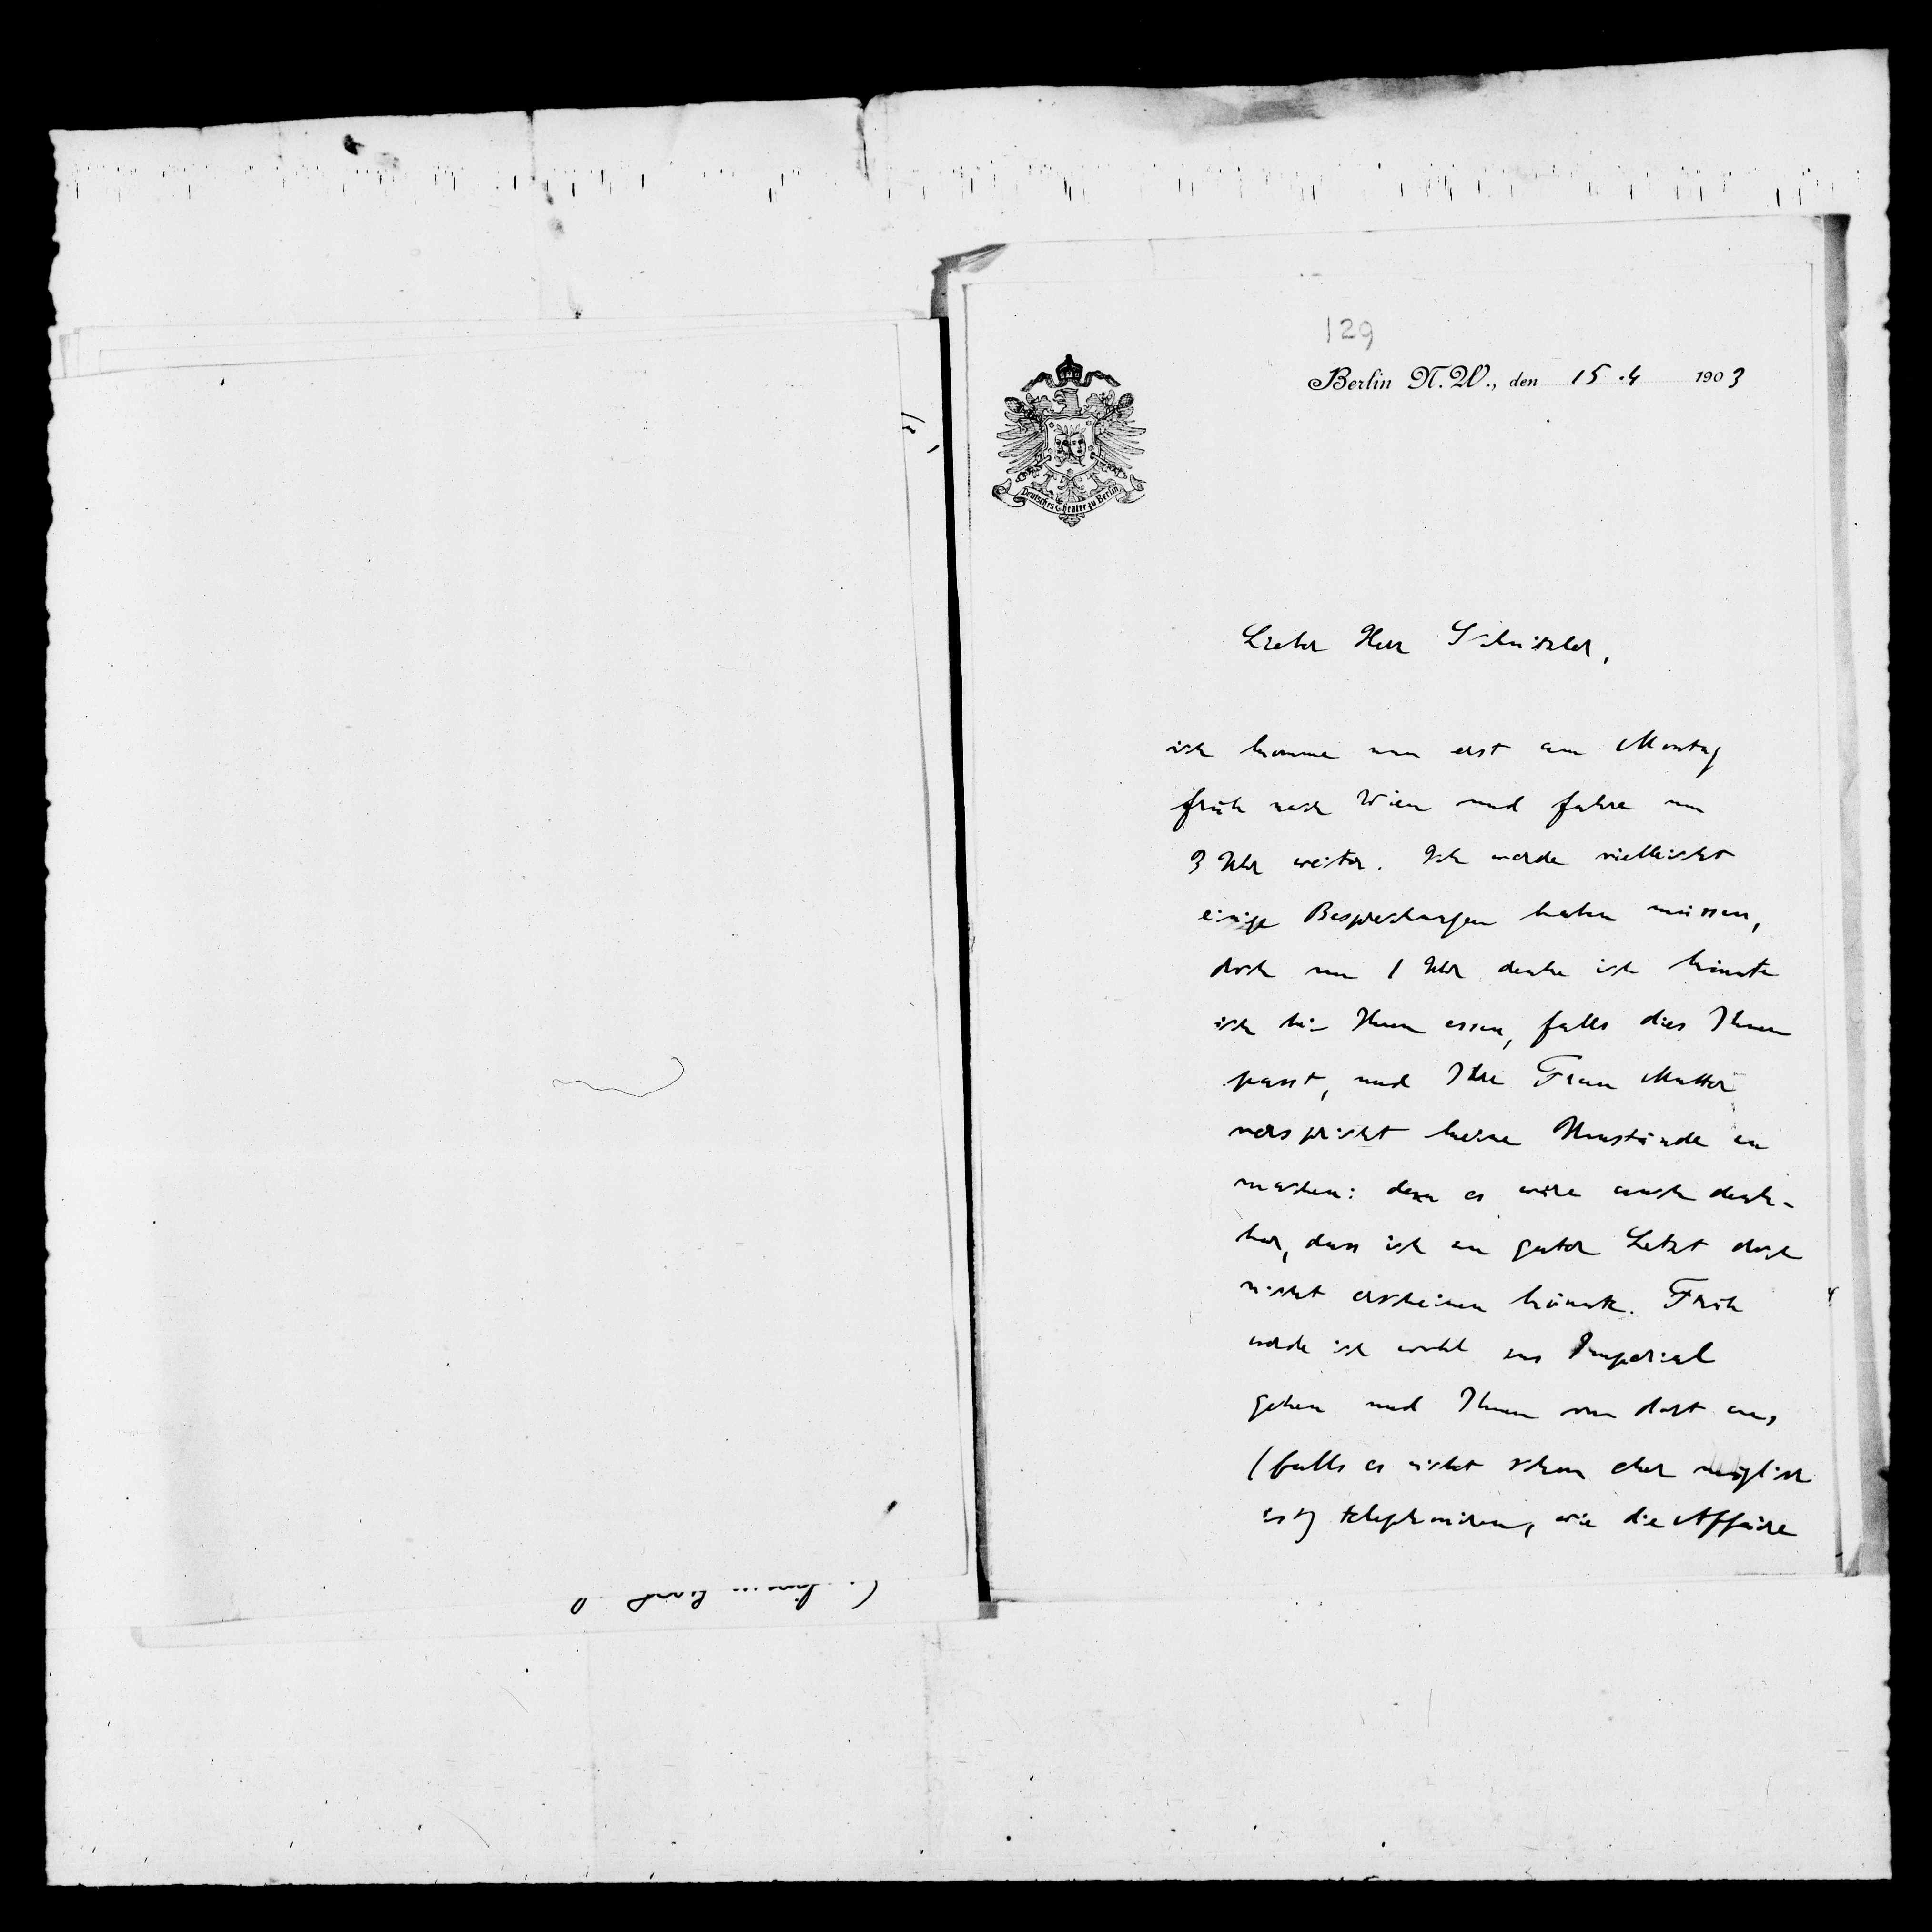 129
Berlin N.W., den 15.4 1903
Deutsches Theater zu Berlin
Lieber Herr Schnitzler,
ich komme nun erst am Montag
früh nach Wien und fahre um
3 Uhr weiter. Ich werde vielleicht
einige Besprechungen haben müssen,
doch um 1 Uhr denke ich könnte
ich bei Ihnen essen, falls dies Ihnen
passt, und Ihre Frau Mutter
verspricht keine Umstände zu
machen: denn es wäre auch denk-
bar, dass ich zu guter Letzt doch
nicht erscheinen könnte. Früh
werde ich wohl ins Imperial
gehen und Ihnen von dort aus
(falls es nicht schon eher möglich
ist) telephoniren, wie die Affaire